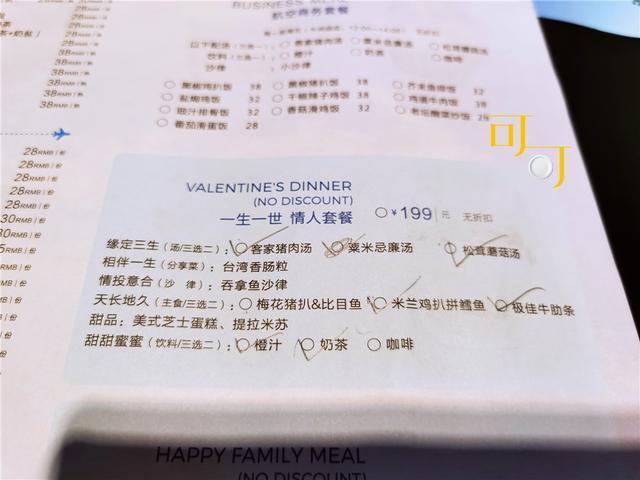 BUSINESS MENU
航空商务套餐
以下配汤（三选一）：○客家猪肉汤 ○粟米忌廉汤 ○松茸蘑菇汤
饮料（三选一）：○橙汁 ○奶茶 ○咖啡
沙律：小沙律
○黑椒鸡扒饭 38 ○黑椒猪扒饭 38 ○芥末鱼柳饭 32
○盐焗鸡饭 32 ○干椒辣子鸡饭 38 ○鸡道牛肉饭 38
○豉汁排骨饭 32 ○香菇滑鸡饭 32 ○老坛酸菜炒饭 28
○番茄滑蛋饭 28
38RMB|碗
38RMB|碗
28RMB|份
28RMB|份
28RMB|份
28RMB|份
28RMB|份
30RMB|份
30RMB|份
RMB|份
38RMB|份
可可
VALENTINE'S DINNER
(NO DISCOUNT)
一生一世 情人套餐 ○¥199|元 无折扣
缘定三生（汤/三选二）：○客家猪肉汤 ○粟米忌廉汤 ○松茸蘑菇汤
相伴一生（分享菜）：台湾香肠粒
情投意合（沙 律）：吞拿鱼沙律
天长地久（主食/三选二）：○梅花猪扒&比目鱼 ○米兰鸡扒拼鳕鱼 ○极佳牛肋条
甜品：美式芝士蛋糕、提拉米苏
甜甜蜜蜜（饮料/三选二）：○橙汁 ○奶茶 ○咖啡
HAPPY FAMILY MEAL
(NO DISCOUNT)